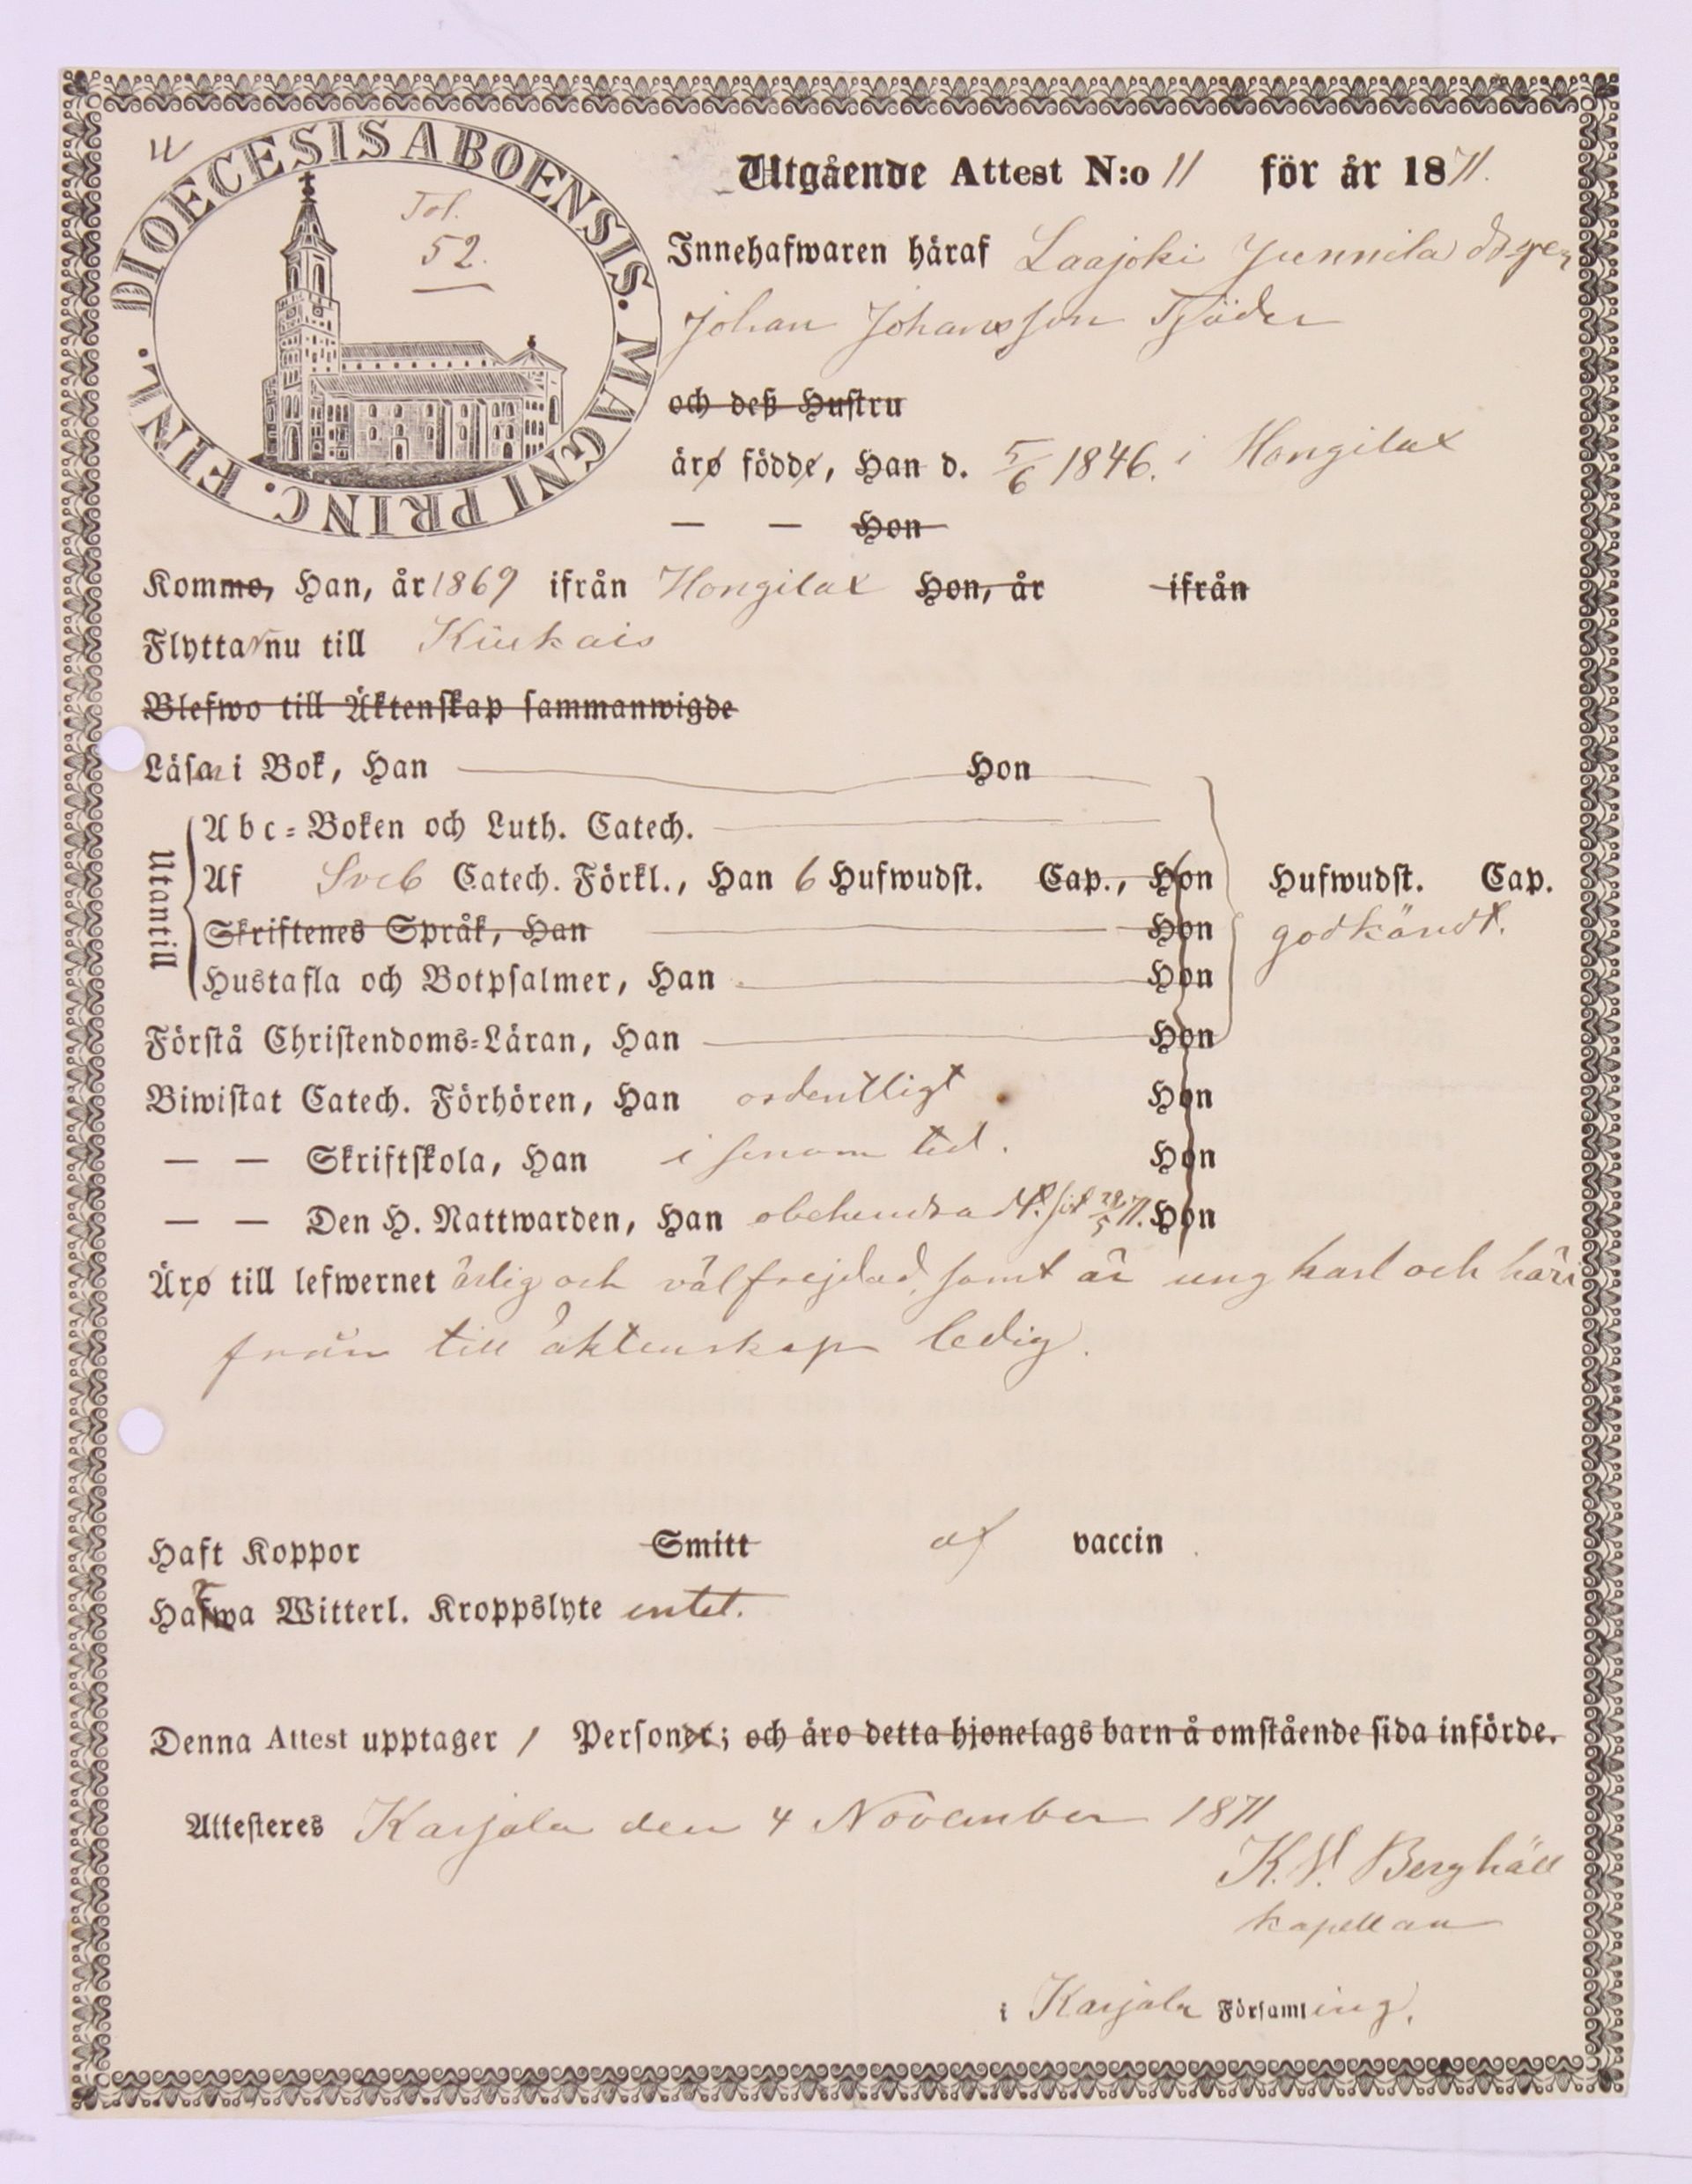 W
DIOECESIS ABOENSIS. MAGNI PRINC. FINL.
Fol.
52.
Utgående Attest N:o 11 för år 1871.
Innehafwaren häraf Laajoki Junnila
Johan Johansson Tjäder
och deß Hustru
äro födde, Han d. 5/6 1846. i Hongilax
— — Hon
Kommo, Han, år 1869 ifrån Hongilax Hon, år ifrån
Flyttar nu till Kiukais
Blefwo till Äktenskap sammanwigde
Läsa i Bok, Han Hon
Utantill
Abc-Boken och Luth. Catech.
Af Sveb Catech. Förkl., Han 6 Hufwudst. Cap., Hon Hufwudst. Cap.
Skriftenes Språk, Han Hon godkändt.
Hustafla och Botpsalmer, Han Hon
Förstå Christendoms-Läran, Han Hon
Biwistat Catech. Förhören, Han ordentligt Hon
— — Skriftskola, Han i sinom tid. Hon
— — Den H. Nattwarden, Han obehindradt. sist 28/5 71. Hon
Äro till lefwernet ärlig och välfrejdad, samt är ung karl och häri
från till äktenskap ledig.
Haft Koppor Smitt af vaccin
Hafwa Witterl. Kroppslyte intet.
Denna Attest upptager 1 Personer; och äro detta hjonelags barn å omstående sida införde.
Attesteres Karjala den 4 November 1871
K. V. Berghäll
kapellan
i Karjala Församling.